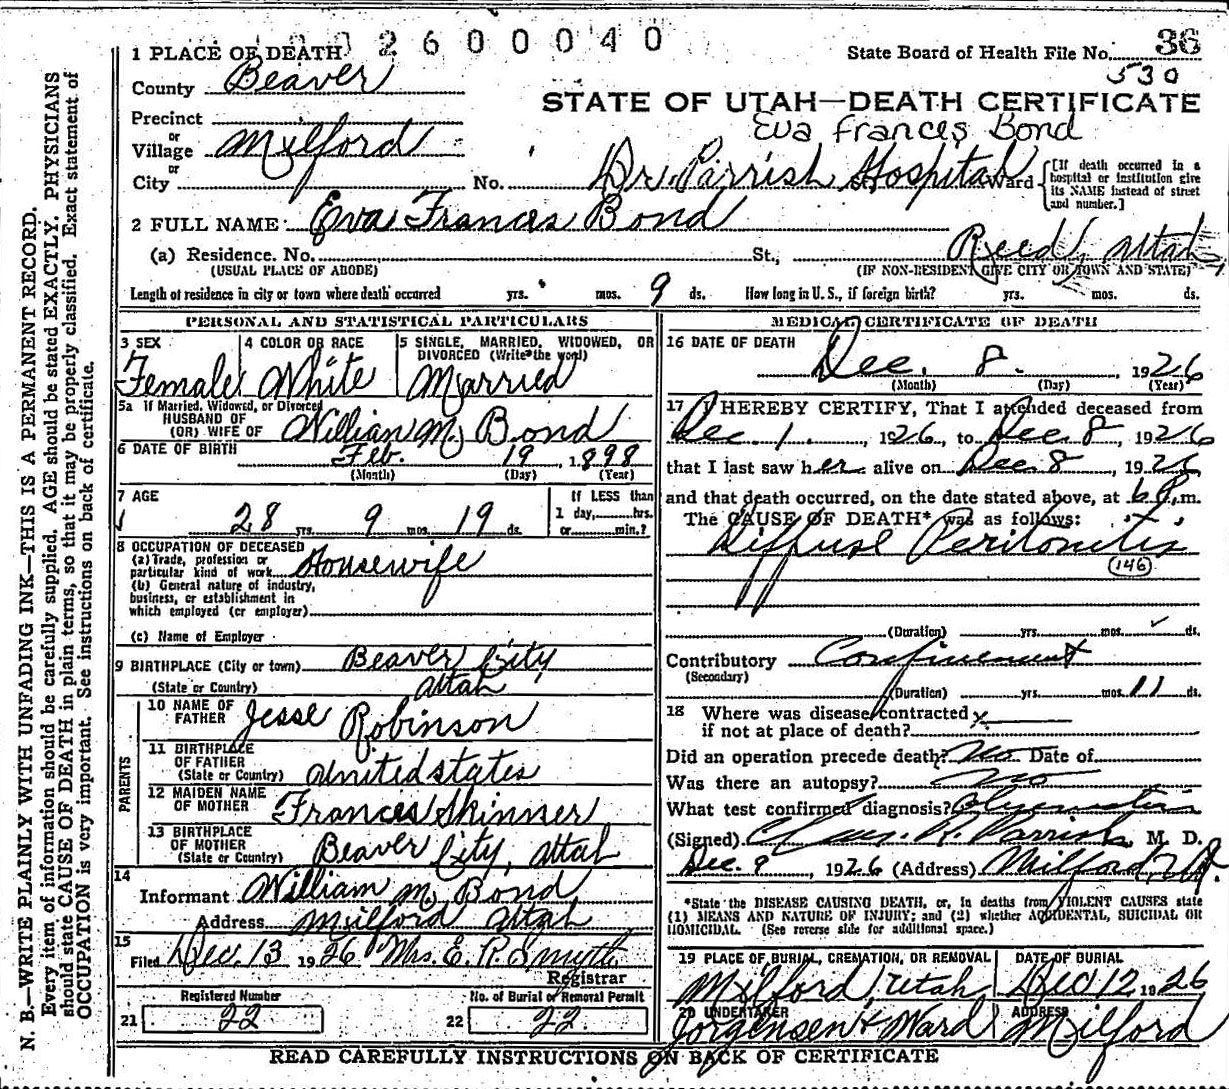 2600040
1 PLACE OF DEATH
State Board of Health File No. 36
530
County Beaver
STATE OF UTAH—DEATH CERTIFICATE
Eva Frances Bond
Precinct
or
Village Milford
or
City No. Dr. Parrish Hospital St. Ward
[If death occurred in a hospital or institution give its NAME instead of street and number.]
2 FULL NAME Eva Frances Bond
(a) Residence. No. St., Reed, Utah
(USUAL PLACE OF ABODE) (IF NON-RESIDENT GIVE CITY OR TOWN AND STATE)
Length of residence in city or town where death occurred yrs. mos. 9 ds. How long in U. S., if foreign birth? yrs. mos. ds.
PERSONAL AND STATISTICAL PARTICULARS
3 SEX Female
4 COLOR OR RACE White
5 SINGLE, MARRIED, WIDOWED, OR DIVORCED (Write the word) Married
5a If Married, Widowed, or Divorced
HUSBAND OF
(OR) WIFE OF William M. Bond
6 DATE OF BIRTH Feb. 19, 1898
(Month) (Day) (Year)
7 AGE
28 yrs. 9 mos. 19 ds.
If LESS than
1 day, hrs.
or min.?
8 OCCUPATION OF DECEASED
(a) Trade, profession or
particular kind of work Housewife
(b) General nature of industry,
business, or establishment in
which employed (or employer)
(c) Name of Employer
9 BIRTHPLACE (City or town) Beaver City
(State or Country) Utah
PARENTS
10 NAME OF FATHER Jesse Robinson
11 BIRTHPLACE OF FATHER (State or Country) United states
12 MAIDEN NAME OF MOTHER Frances Skinner
13 BIRTHPLACE OF MOTHER (State or Country) Beaver City, Utah
14
Informant William M. Bond
Address Milford Utah
15
Filed Dec. 13 1926 Mrs. E. R. Smyth
Registrar
Registered Number
21 22
No. of Burial or Removal Permit
22 22
MEDICAL CERTIFICATE OF DEATH
16 DATE OF DEATH
Dec. 8. , 1926
(Month) (Day) (Year)
17 I HEREBY CERTIFY, That I attended deceased from
Dec. 1. , 1926, to Dec. 8 , 1926
that I last saw her alive on Dec. 8 , 1926
and that death occurred, on the date stated above, at 6 P.m.
The CAUSE OF DEATH* was as follows:
Diffuse Peritonitis
(146)
(Duration) yrs. mos. ds.
Contributory Confinement
(Secondary)
(Duration) yrs. mos. 11 ds.
18 Where was disease contracted
if not at place of death?
Did an operation precede death? No Date of
Was there an autopsy? No
What test confirmed diagnosis?
(Signed) R. Parrish M. D.
Dec. 9 , 1926 (Address) Milford, Ut.
*State the DISEASE CAUSING DEATH, or, in deaths from VIOLENT CAUSES state
(1) MEANS AND NATURE OF INJURY; and (2) whether ACCIDENTAL, SUICIDAL OR
HOMICIDAL. (See reverse side for additional space.)
19 PLACE OF BURIAL, CREMATION, OR REMOVAL
Milford, Utah
DATE OF BURIAL
Dec 12, 1926
20 UNDERTAKER
Jorgensen & Ward
ADDRESS
Milford
READ CAREFULLY INSTRUCTIONS ON BACK OF CERTIFICATE
N. B.—WRITE PLAINLY WITH UNFADING INK—THIS IS A PERMANENT RECORD.
Every item of information should be carefully supplied. AGE should be stated EXACTLY. PHYSICIANS
should state CAUSE OF DEATH in plain terms, so that it may be properly classified. Exact statement of
OCCUPATION is very important. See instructions on back of certificate.